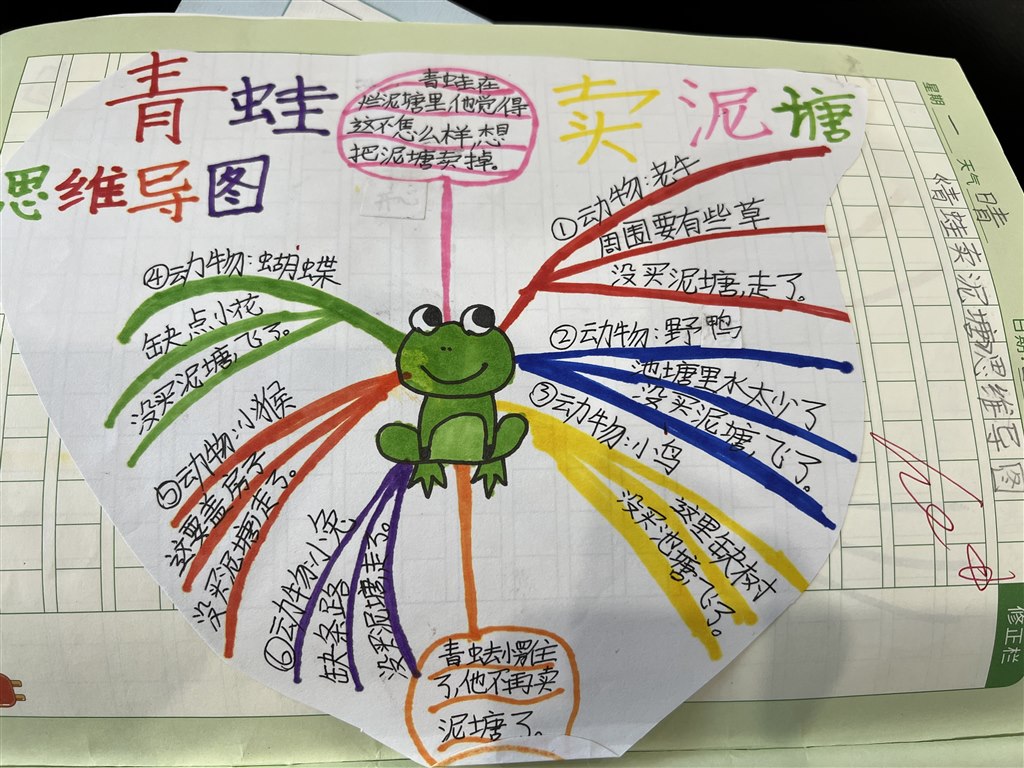 青蛙 卖泥塘
思维导图
青蛙在
烂泥塘里,他觉得
这不怎么样,想
把泥塘卖掉。
①动物:老牛
周围要有些草
没买泥塘,走了。
②动物:野鸭
池塘里水太少了
没买泥塘,飞了。
③动物:小鸟
这里缺棵树
没买池塘,飞了。
④动物:蝴蝶
缺点小花
没买泥塘,飞了。
⑤动物:小猴
这要盖房子
没买泥塘走了。
⑥动物:小兔
缺条路
没买泥塘走了。
青蛙愣住
了,他不再卖
泥塘了。
星期 一
天气 晴
日期
《青蛙卖泥塘》思维导图
修正栏